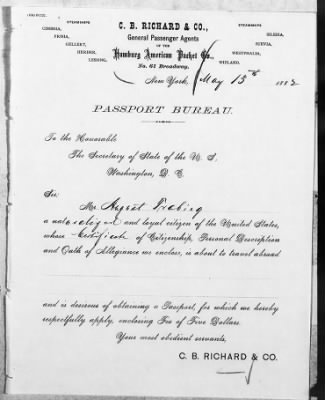 STEAMSHIPS
CIMBRIA,
FRISIA,
GELLERT,
HERDER,
LESSING,
C. B. RICHARD & CO.,
General Passenger Agents
OF THE
Hamburg American Packet Co.,
No. 61 Broadway.
STEAMSHIPS
SILESIA,
SUEVIA,
WESTPHALIA,
WIELAND.
New York, May 15th 1882
PASSPORT BUREAU.
To the Honorable
The Secretary of State of the U. S.
Washington, D. C.
Sir:
Mr. August
a naturalized and loyal citizen of the United States,
whose Certificate of Citizenship, Personal Description
and Oath of Allegiance we enclose, is about to travel abroad
and is desirous of obtaining a Passport, for which we hereby
respectfully apply, enclosing Fee of Five Dollars.
Your most obedient servants,
C. B. RICHARD & CO.